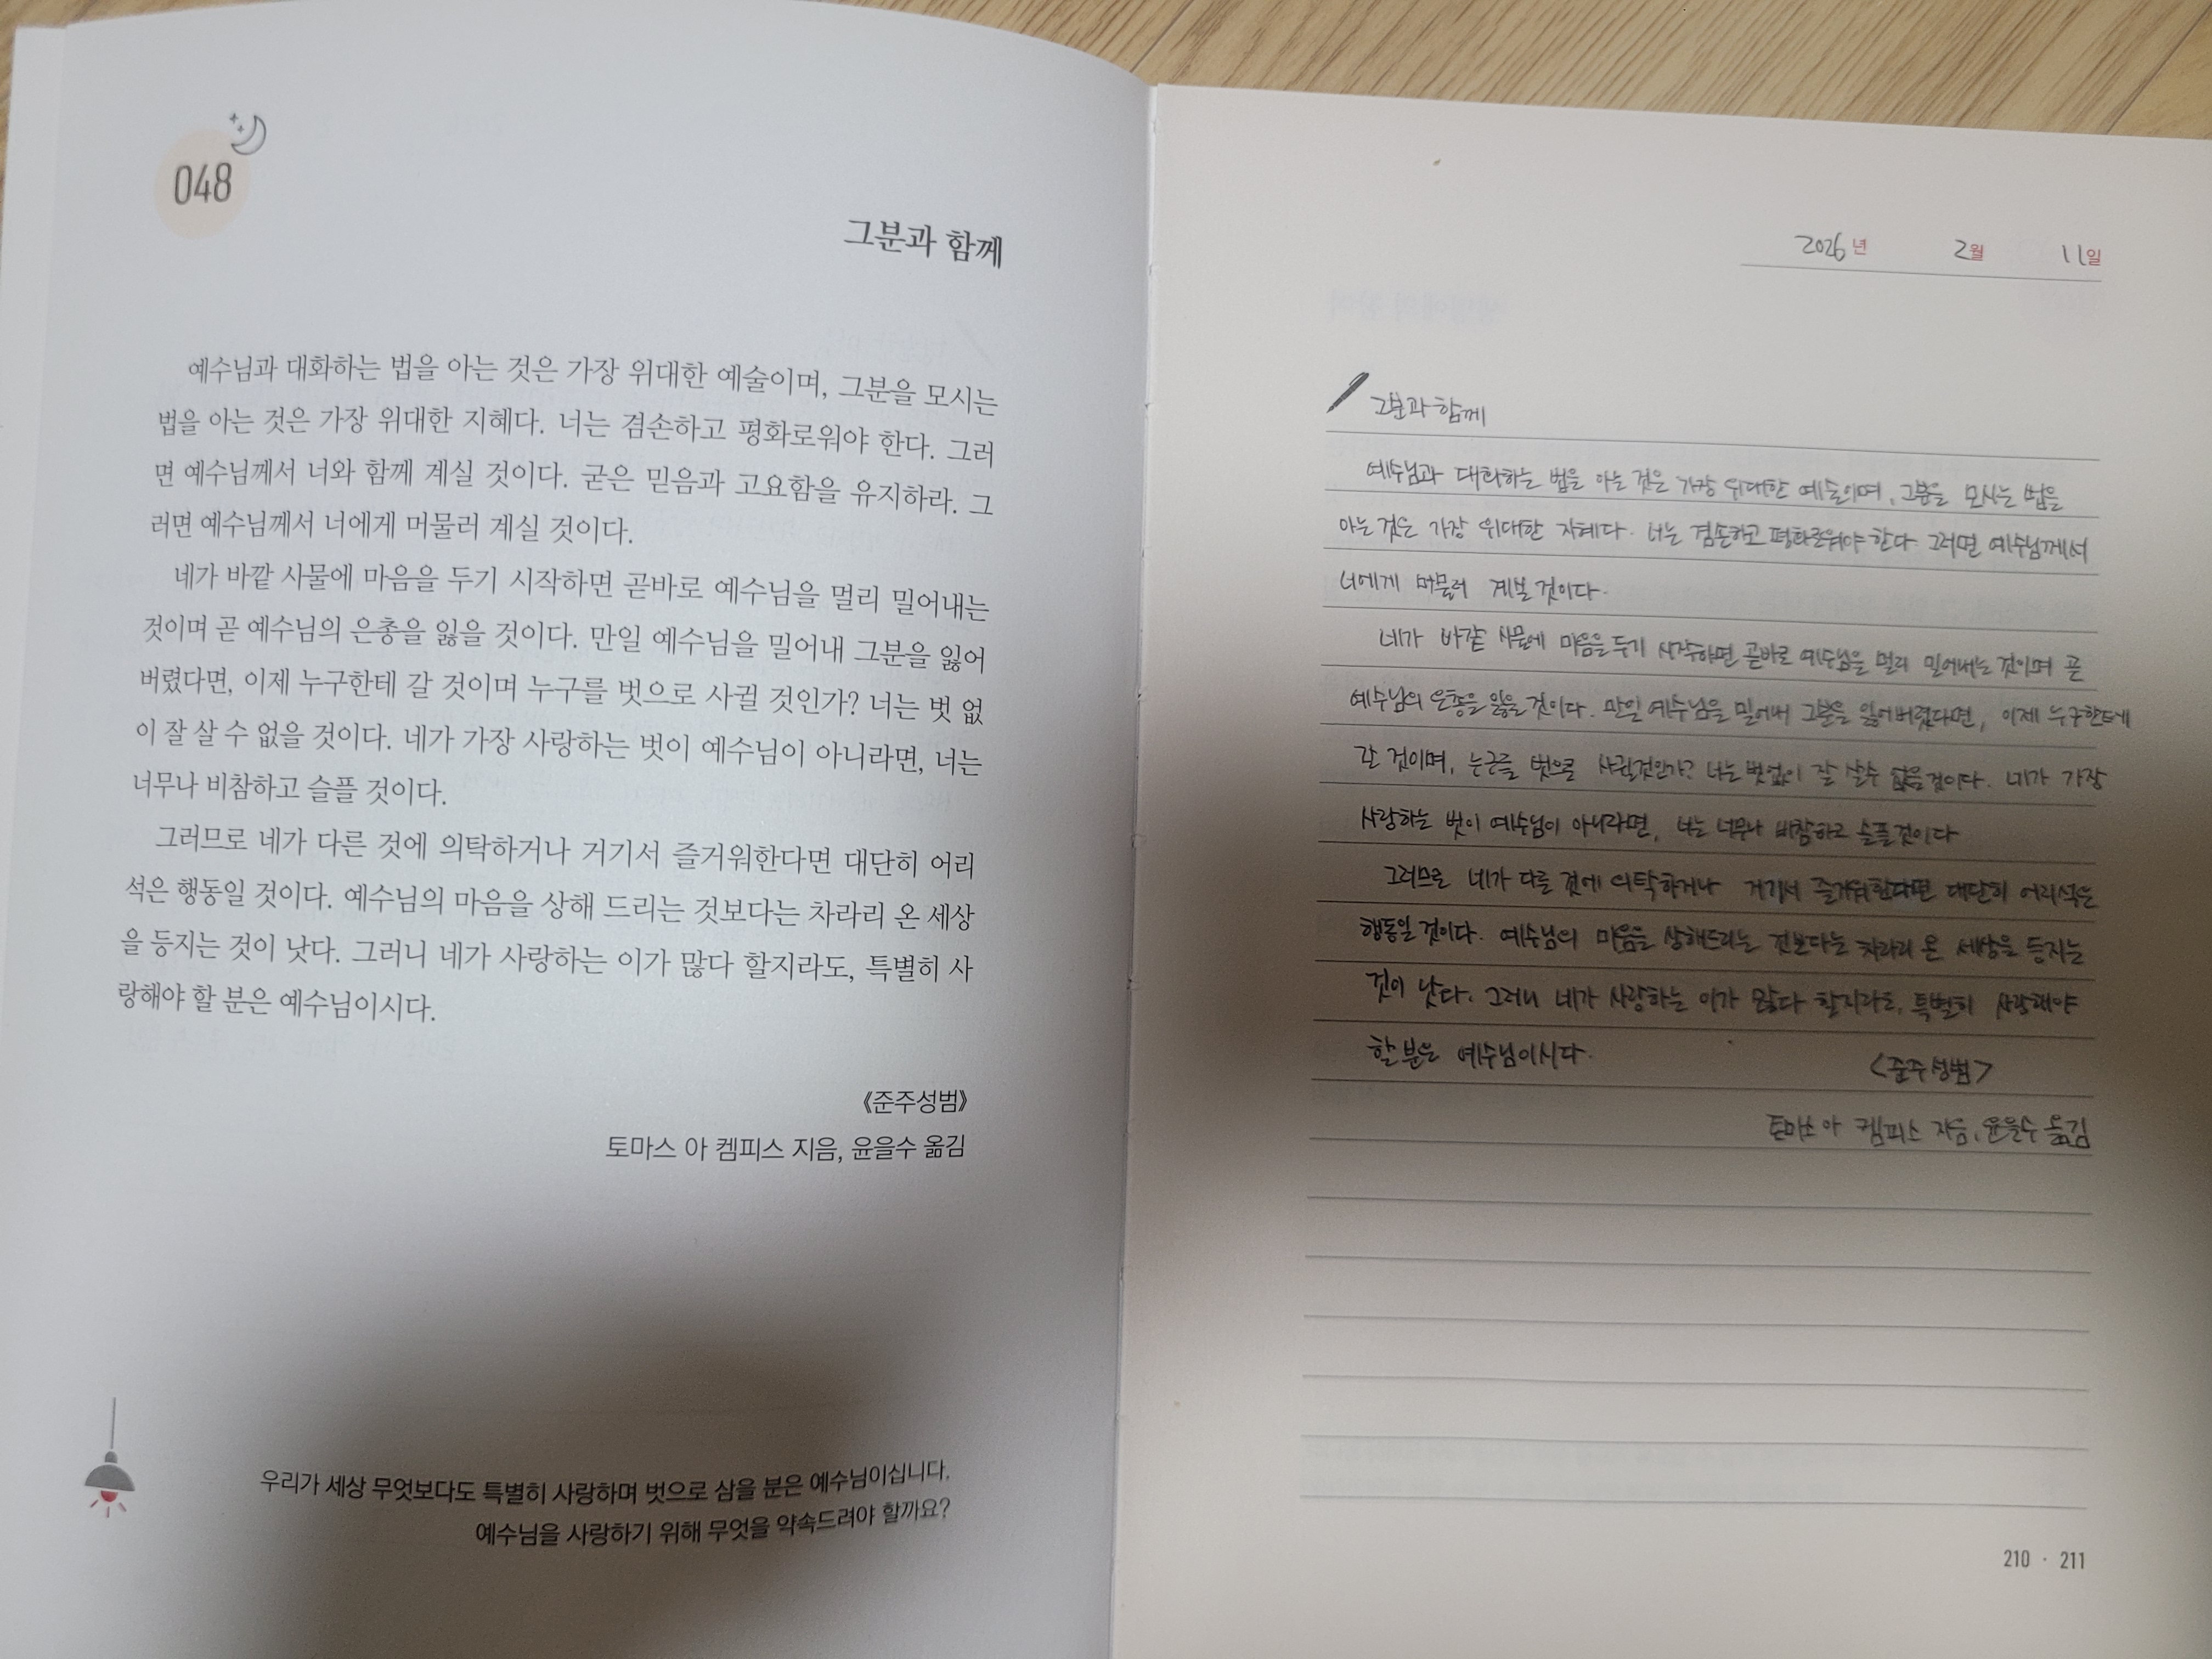 048
그분과 함께
예수님과 대화하는 법을 아는 것은 가장 위대한 예술이며, 그분을 모시는
법을 아는 것은 가장 위대한 지혜다. 너는 겸손하고 평화로워야 한다. 그러
면 예수님께서 너와 함께 계실 것이다. 굳은 믿음과 고요함을 유지하라. 그
러면 예수님께서 너에게 머물러 계실 것이다.
네가 바깥 사물에 마음을 두기 시작하면 곧바로 예수님을 멀리 밀어내는
것이며 곧 예수님의 은총을 잃을 것이다. 만일 예수님을 밀어내 그분을 잃어
버렸다면, 이제 누구한테 갈 것이며 누구를 벗으로 사귈 것인가? 너는 벗 없
이 잘 살 수 없을 것이다. 네가 가장 사랑하는 벗이 예수님이 아니라면, 너는
너무나 비참하고 슬플 것이다.
그러므로 네가 다른 것에 의탁하거나 거기서 즐거워한다면 대단히 어리
석은 행동일 것이다. 예수님의 마음을 상해 드리는 것보다는 차라리 온 세상
을 등지는 것이 낫다. 그러니 네가 사랑하는 이가 많다 할지라도, 특별히 사
랑해야 할 분은 예수님이시다.
《준주성범》
토마스 아 켐피스 지음, 윤을수 옮김
우리가 세상 무엇보다도 특별히 사랑하며 벗으로 삼을 분은 예수님이십니다.
예수님을 사랑하기 위해 무엇을 약속드려야 할까요?
2026년 2월 11일
그분과 함께
예수님과 대화하는 법을 아는 것은 가장 위대한 예술이며, 그분을 모시는 법을
아는 것은 가장 위대한 지혜다. 너는 겸손하고 평화로워야 한다. 그러면 예수님께서
너에게 머물러 것이다.
네가 바깥 사물에 마음을 두기 시작하면 곧바로 예수님을 멀리 밀어내는 것이며 곧
예수님의 은총을 잃을 것이다. 만일 예수님을 밀어내 그분을 잃어버렸다면, 이제 누구한테
갈 것이며, 누구를 벗으로 사귈것인가? 너는 벗없이 잘 살수 없을것이다. 네가 가장
사랑하는 벗이 예수님이 아니라면, 너는 너무나 비참하고 슬플것이다
그러므로 네가 다른 것에 의탁하거나 거기서 즐거워한다면 대단히 어리석은
행동일 것이다. 예수님의 마음을 상해드리는 것보다는 차라리 온 세상을 등지는
것이 낫다. 그러니 네가 사랑하는 이가 많다 할지라도, 특별히 사랑해야
할 분은 예수님이시다.
<준주성범>
토마스 아 켐피스 지음, 윤을수 옮김
210 · 211